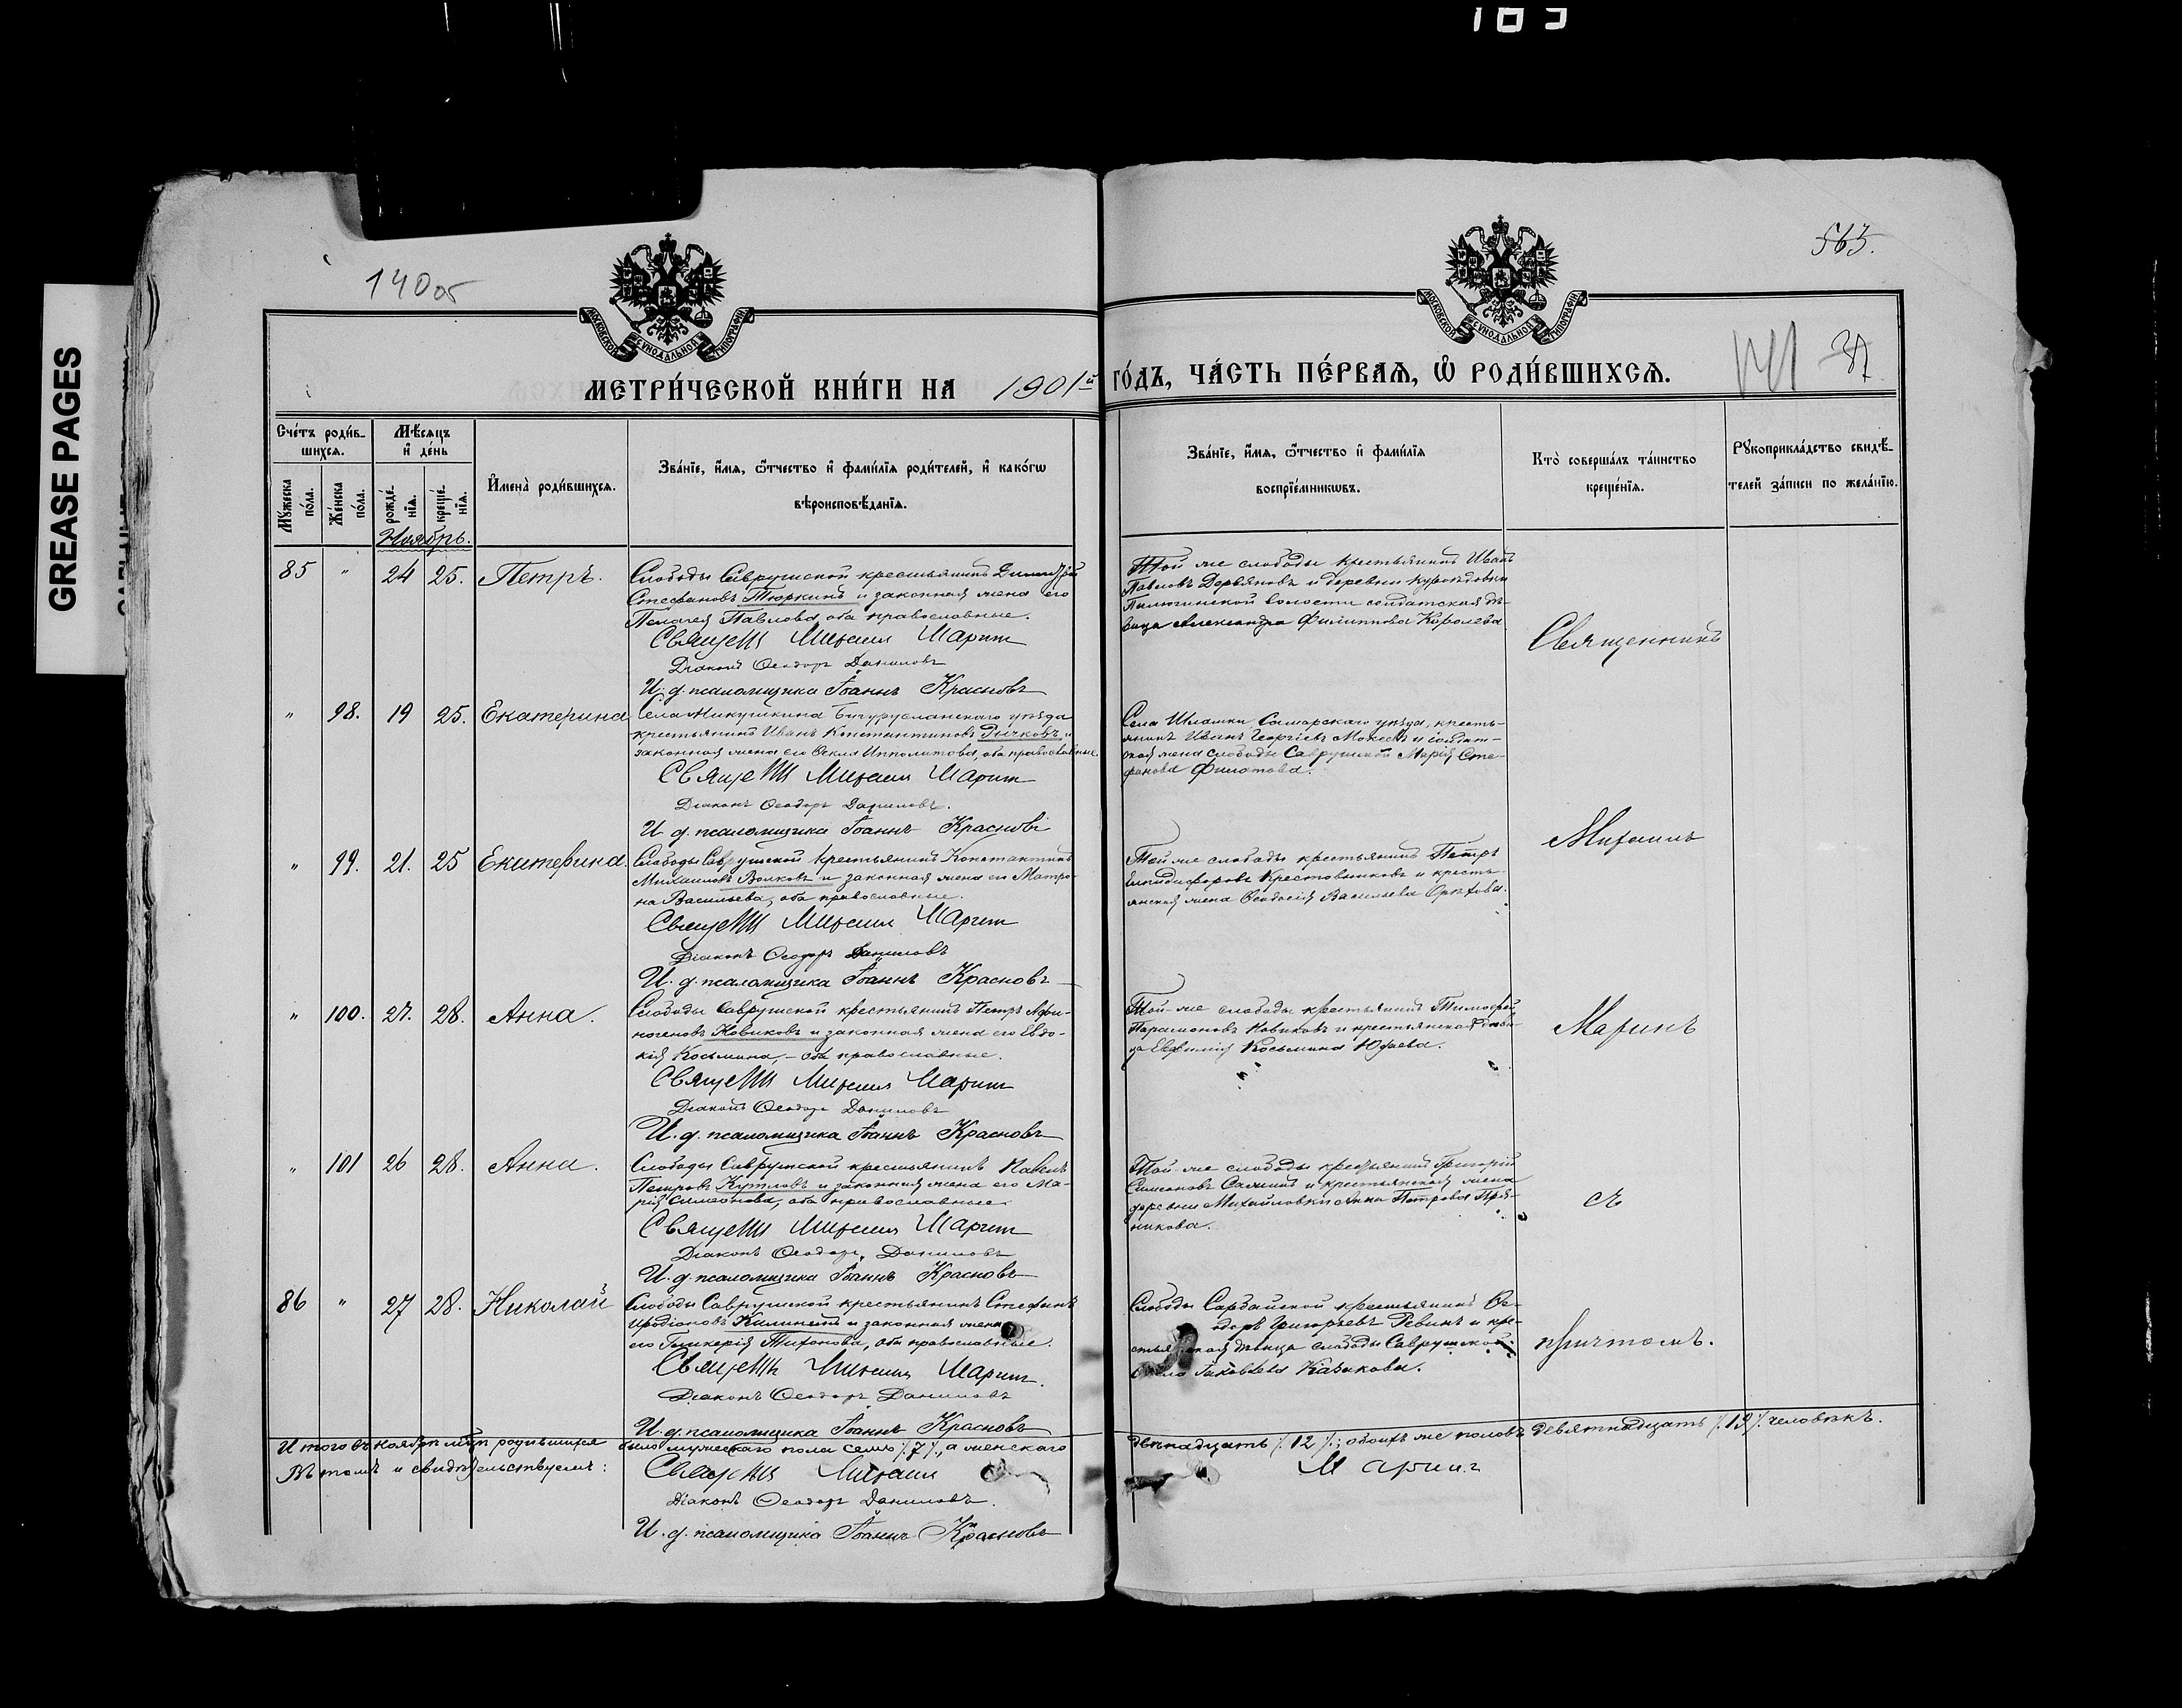 GREASE PAGES
140 об
565.
МОСКОВСКОЙ СУНОДАЛЬНОЙ ТИПОГРАФІИ
МОСКОВСКОЙ СУНОДАЛЬНОЙ ТИПОГРАФІИ
141 37
МЕТРИ́ЧЕСКОЙ КНИ́ГИ НА 1901й ГО́ДЪ, ЧА́СТЬ ПЕ́РВАѦ, Ѡ҆ РОДИ́ВШИХСѦ.
Сче́тъ роди́в-
шихсѧ.
Мꙋ́жеска по́ла.
Же́нска по́ла.
Мѣ́сѧцъ и҆ де́нь
рожде́-
нїѧ.
креще́-
нїѧ.
И҆мена̀ роди́вшихсѧ.
Зва́нїе, и҆́мѧ, ѻ҆́тчество и҆ фами́лїѧ роди́телей, и҆ како́гѡ
вѣроисповѣ́данїѧ.
Зва́нїе, и҆́мѧ, ѻ҆́тчество и҆ фами́лїѧ
воспрїе́мникѡвъ.
Кто̀ соверша́лъ та́инство
креще́нїѧ.
Рꙋкоприкла́дство свидѣ́-
телей за́писи по жела́нїю.
Ноябрь.
85 " 24 25. Петръ.
Слободы Саврушской крестьянинъ Димитрій
Стефановъ Тюркинъ и законная жена его
Пелагея Павлова, оба православные.
Священ Михаил Марин
Діаконъ Ѳеодоръ Даниловъ
И. д. псаломщика Іоаннъ Красновъ
Той же слободы крестьянинъ Иванъ
Павловъ Деревяновъ и деревни
волости солдатская дѣ-
вица Александра Филиппова Королева.
" 98. 19 25. Екатерина
Села Микушкина Бугурусланскаго уѣзда
крестьянинъ Иванъ Константиновъ Рычковъ и
законная жена его Ѳекла Ипполитова, оба православные.
Священ Михаил Марин
Діаконъ Ѳеодоръ Даниловъ.
И д. псаломщика Іоаннъ Красновъ
Села Самарскаго уѣзда, кресть-
янинъ Иванъ Георгіевъ и солдат-
ская жена слободы Саврушской Марія Сте-
фанова Филатова.
" 99. 21. 25 Екатерина.
Слободы Саврушской крестьянинъ Константинъ
Михаиловъ Волковъ и законная жена его Матро-
на Васильева, оба православные.
Священ Михаил Марин
Діаконъ Ѳеодоръ Даниловъ
И. д. псаломщика Іоаннъ Красновъ
Той же слободы крестьянинъ Петръ
Елпидифоровъ Крестовниковъ и кресть-
янская жена Ѳеодосія Васильева
" 100. 27. 28. Анна.
Слободы Саврушской крестьянинъ Петръ Афи-
ногеновъ Новиковъ и законная жена его Евдо-
кія Косьмина, – оба православные.
Священ Михаил Марин
Діаконъ Ѳеодоръ Даниловъ
И. д. псаломщика Іоаннъ Красновъ
Той-же слободы крестьянинъ Тимофей
Парамоновъ Новиковъ и крестьянская дѣви-
ца Евфимія Косьмина Юдаева.
" 101 26 28. Анна.
Слободы Саврушской крестьянинъ Павелъ
Петровъ Кутловъ и законная жена его Ма-
рія Симеонова, оба православные
Священ Михаил Марин
Діаконъ Ѳеодоръ Даниловъ
И. д. псаломщика Іоаннъ Красновъ
Той-же слободы крестьянинъ Григорій
Симеоновъ и крестьянская жена
деревни Михайловки Анна Петрова Пря-
никова.
86 " 27 28. Николай
Слободы Саврушской крестьянинъ Стефанъ
Иродіоновъ Калининъ и законная жена
его Гликерія Тихонова, оба православные.
Священ Михаил Марин.
Діаконъ Ѳеодоръ Даниловъ
И. д. псаломщика Іоаннъ Красновъ
Слободы Сарбайской крестьянинъ Ѳе-
одоръ Григорьевъ Ревинъ и кре-
стьянская дѣвица слободы Саврушской
Іаковлева Казакова.
Священникъ
Михаилъ
Маринъ
съ
причтомъ.
Итого въ ноябрѣ мцѣ родившихся было мужескаго пола семь /.7/., а женскаго двѣнадцать /.12/.; обоихъ же половъ девятнадцать /.19/. человѣкъ.
Въ томъ и свидѣтельствуемъ: Священ Михаил Марин
Діаконъ Ѳеодоръ Даниловъ.
И. д. псаломщика Іоаннъ Красновъ